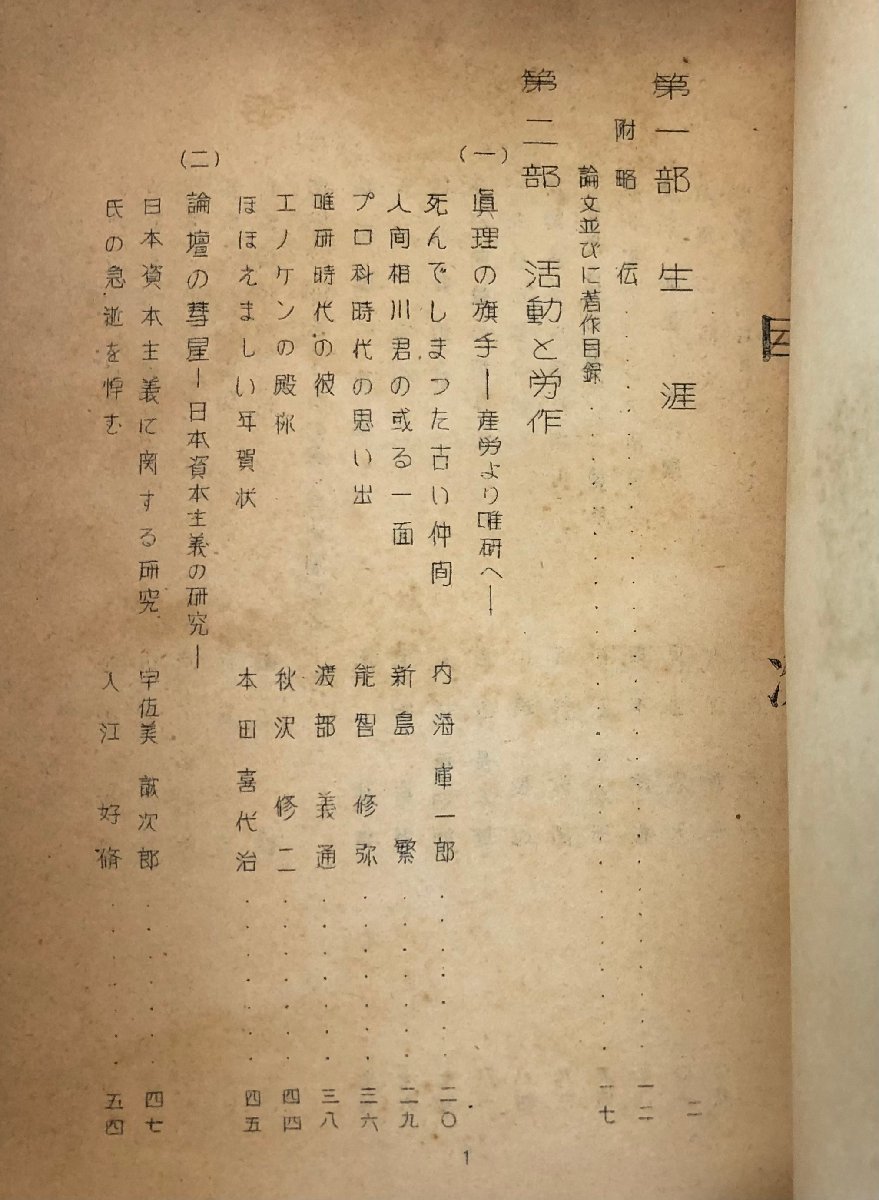 目次
第一部 生涯 二
附 略伝 一二
論文並びに著作目録 一七
第二部 活動と労作
(一) 眞理の旗手―産労より唯研へ―
死んでしまつた古い仲間 内海庫一郎 二〇
人间相川君の或る一面 新島繁 二九
プロ科時代の思い出 能智修弥 三六
唯研時代の彼 渡部義通 三八
エノケンの殿様 秋沢修二 四四
ほほえましい年賀状 本田喜代治 四五
(二) 論壇の彗星―日本資本主義の研究―
日本資本主義に関する研究 宇佐美誠次郎 四七
氏の急逝を悼む 入江好脩 五四
1